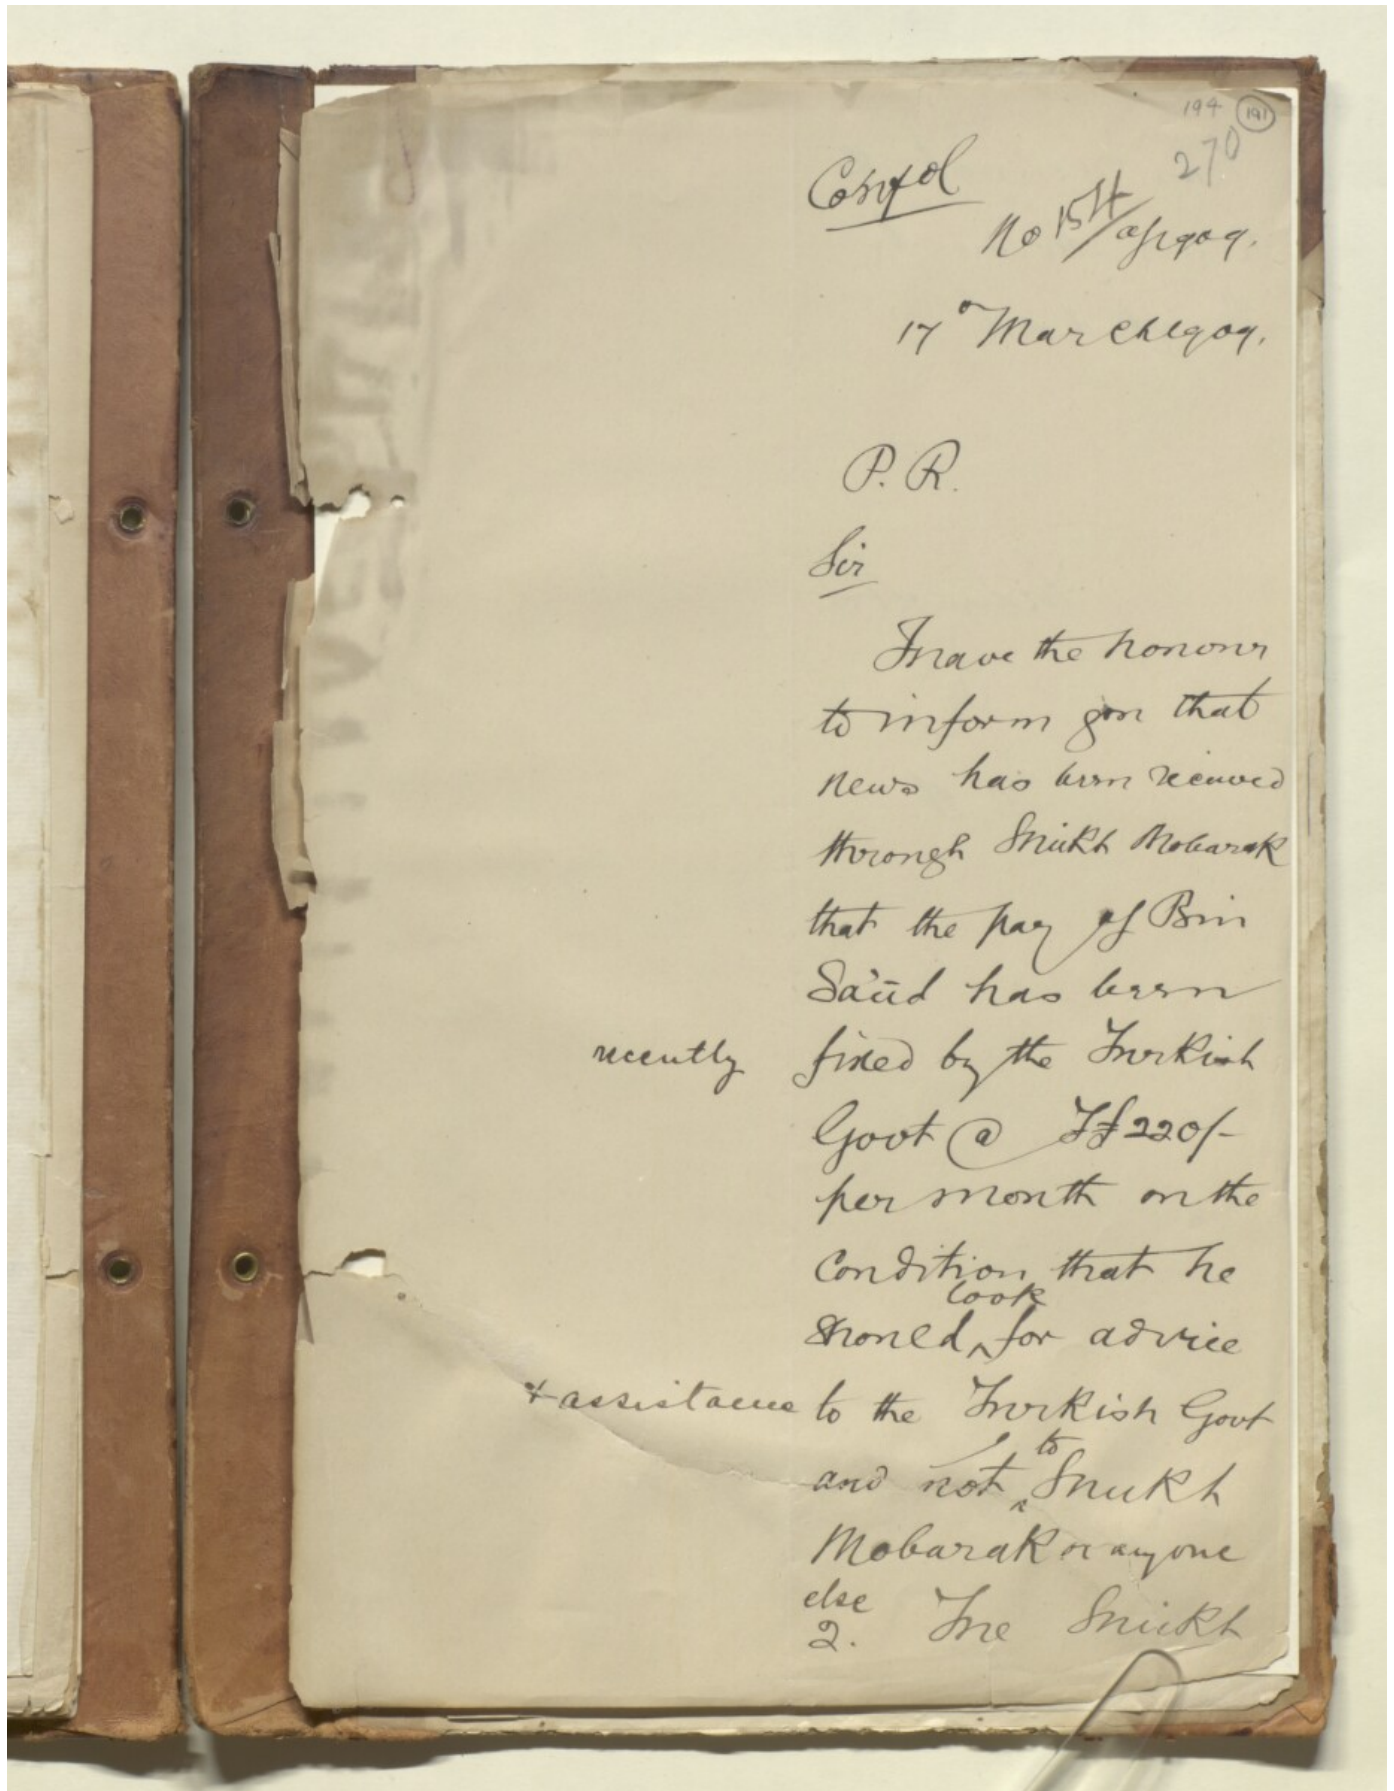 194 191
270
Confdl
No 154/of 1909.
17th March 1909.
P. R.
Sir
I have the honour
to inform you that
news has been received
through Sheikh Mobarak
that the pay of Bin
Sa'ūd has been
recently fixed by the Turkish
Govt @ T£220/-
per month on the
condition that he
look
should for advice
+ assistance to the Turkish Govt
to
and not Sheikh
Mobarak or anyone
else
2. The Sheikh